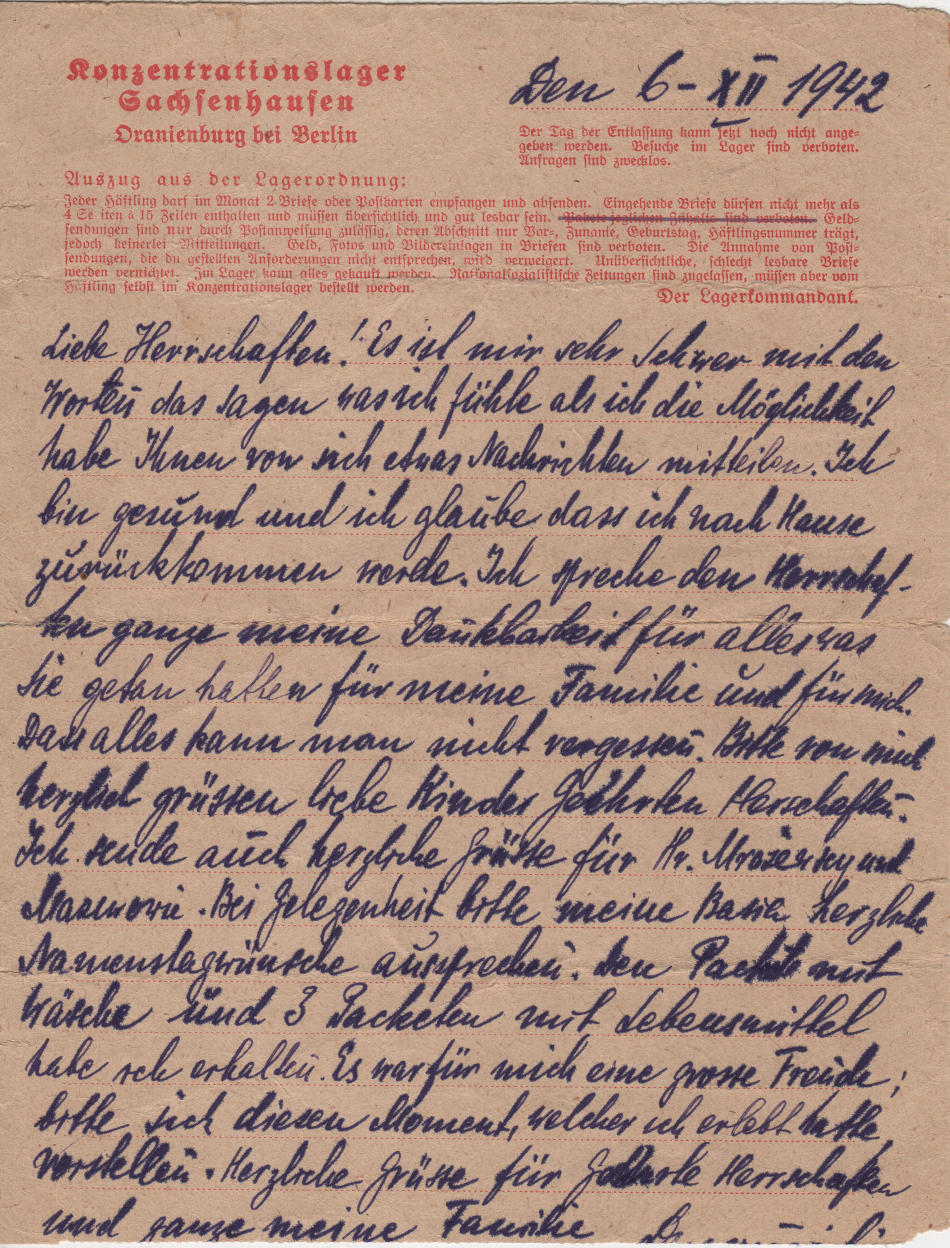 Konzentrationslager
Sachsenhausen
Oranienburg bei Berlin
Den 6-XII 1942
Der Tag der Entlassung kann jetzt noch nicht ange-
geben werden. Besuche im Lager sind verboten.
Anfragen sind zwecklos.
Auszug aus der Lagerordnung:
Jeder Häftling darf im Monat 2 Briefe oder Postkarten empfangen und absenden. Eingehende Briefe dürfen nicht mehr als
4 Seiten à 15 Zeilen enthalten und müssen übersichtlich und gut lesbar sein. Pakete jeglichen Inhalts sind verboten. Geld-
sendungen sind nur durch Postanweisung zulässig, deren Abschnitt nur Vor-, Zuname, Geburtstag, Häftlingsnummer trägt,
jedoch keinerlei Mitteilungen. Geld, Fotos und Bildereinlagen in Briefen sind verboten. Die Annahme von Post-
sendungen, die den gestellten Anforderungen nicht entsprechen, wird verweigert. Unübersichtliche, schlecht lesbare Briefe
werden vernichtet. Im Lager kann alles gekauft werden. Nationalsozialistische Zeitungen sind zugelassen, müssen aber vom
Häftling selbst im Konzentrationslager bestellt werden.
Der Lagerkommandant.
Liebe Herrschaften! Es ist mir sehr schwer mit den
Worten das sagen was ich fühle als ich die Möglichkeit
habe Ihnen von sich etwas Nachrichten mitteilen. Ich
bin gesund und ich glaube dass ich nach Hause
zurückkommen werde. Ich spreche den Herrschaf-
ten ganze meine Dankbarkeit für alles was
Sie getan hatten für meine Familie und für mich.
Dass alles kann man nicht vergessen. Bitte von mich
herzlich grüssen liebe Kinder Geehrten Herschaften.
Ich sende auch herzliche Grüsse für Hr. und
Bei Gelegenheit bitte meine Basia herzliche
Namenstagwünsche aussprechen. Den Packet mit
Wäsche und 3 Packeten mit Lebensmittel
habe ich erhalten. Es war für mich eine grosse Freude;
bitte sich diesen Moment, welcher ich erlebt hatte,
vorstellen. Herzliche Grüsse für Geehrte Herrschaften
und ganze meine Familie